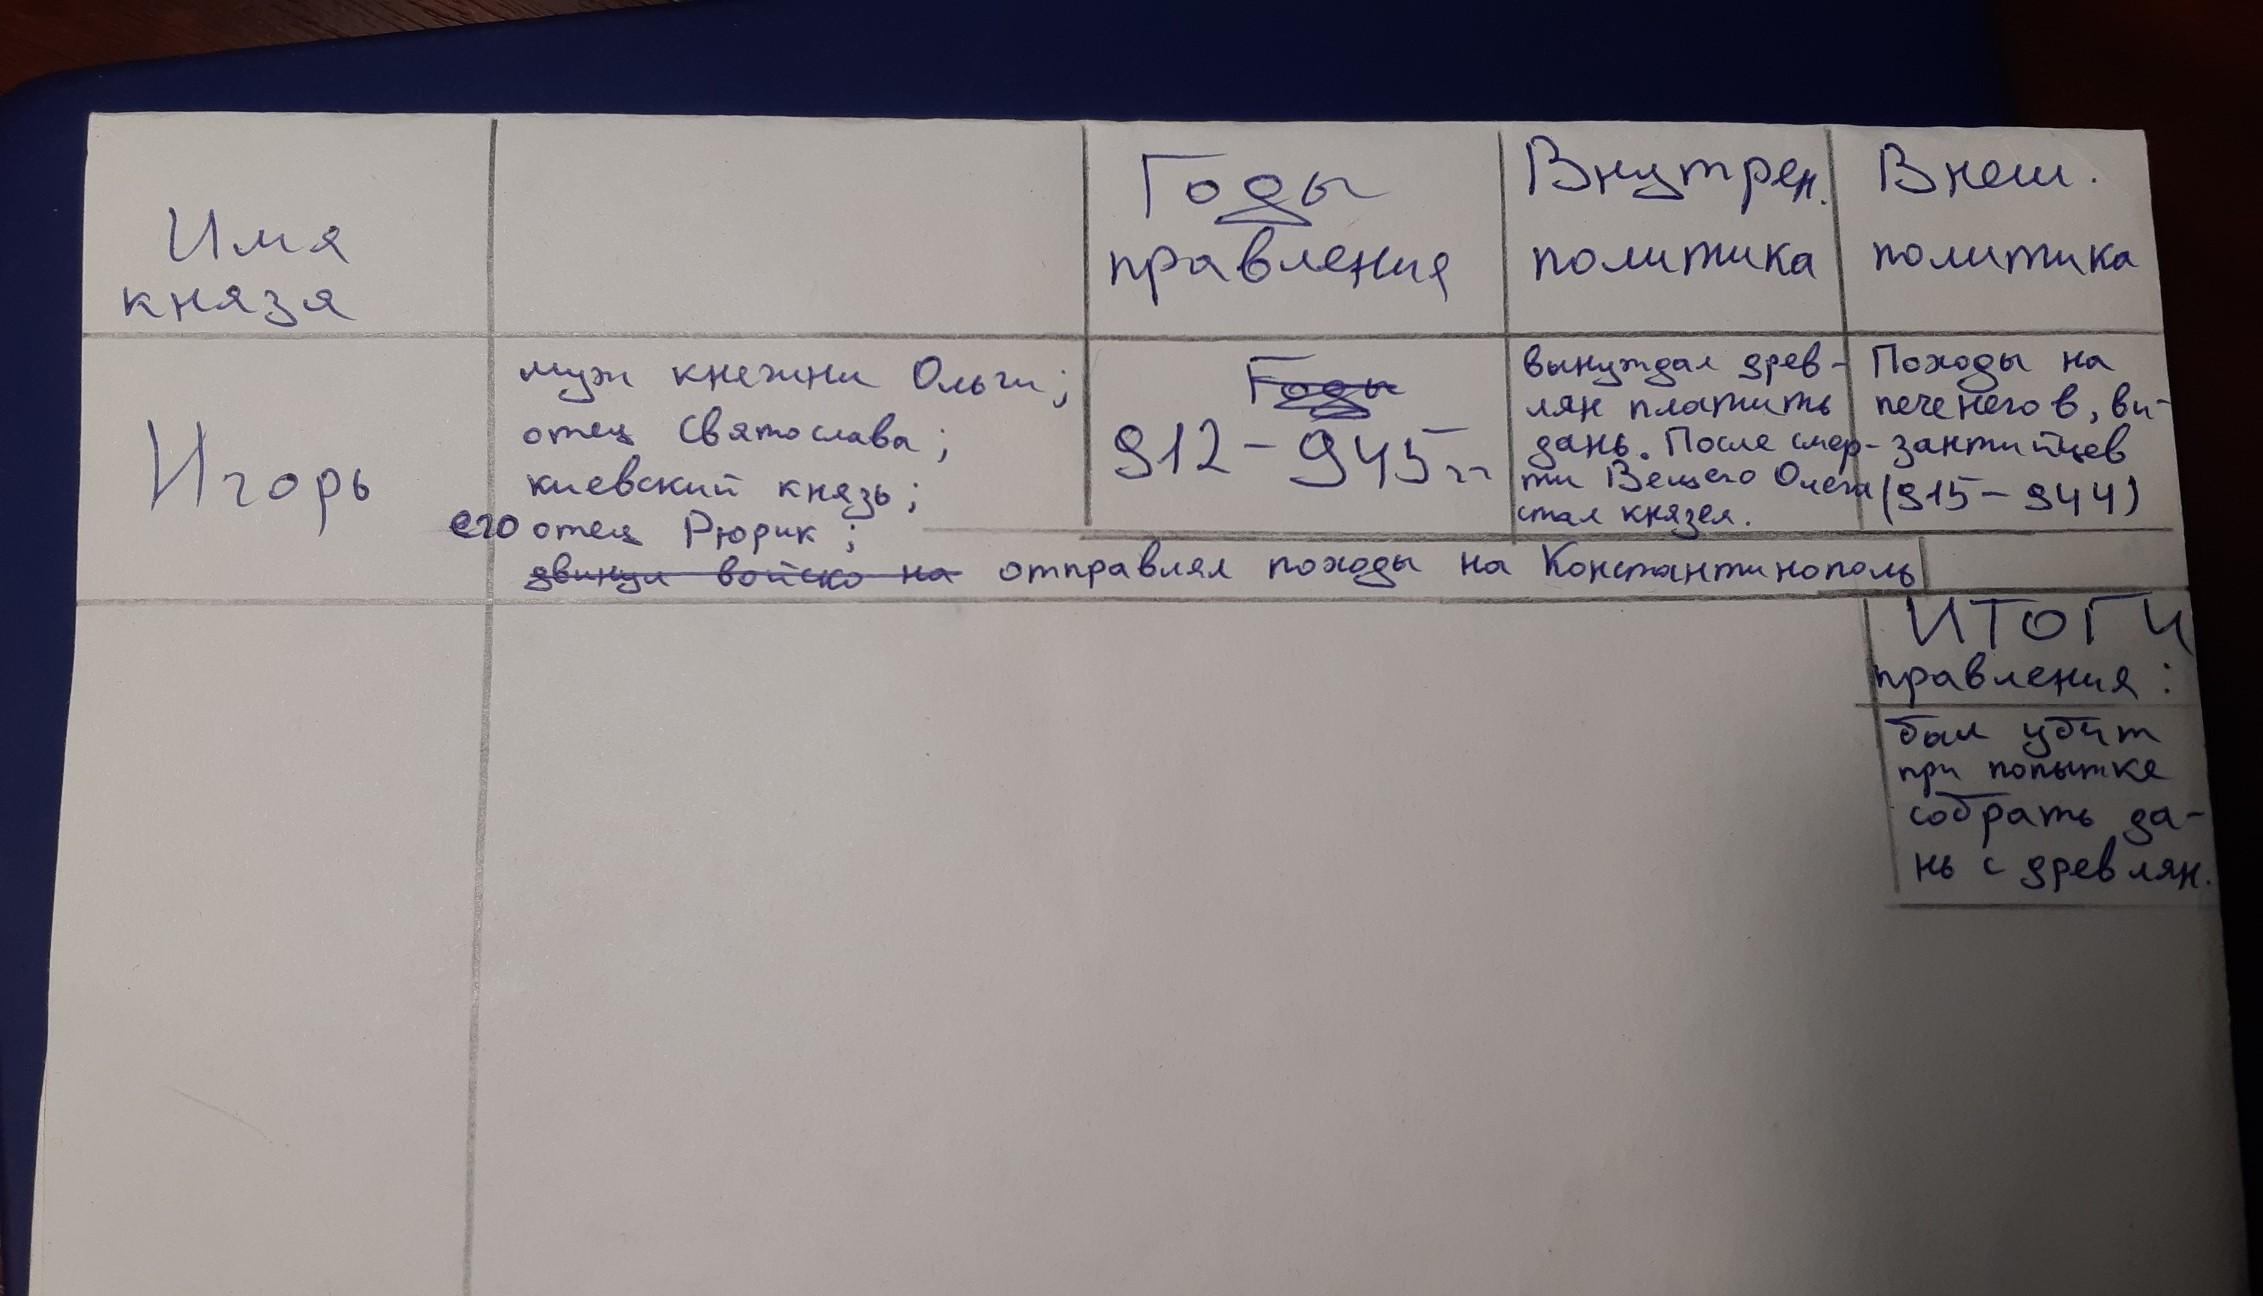 Имя
князя
Годы
правления
Внутрен.
политика
Внеш.
политика
Игорь
муж княжни Ольги;
отец Святослава;
киевский князь;
его отец Рюрик;
двинул войско на отправлял походы на Константинополь
Годы
912-945гг
вынуждал древ-
лян платить
дань. После смер-
ти Вещего Олега
стал князем.
Походы на
печенегов, ви-
зантийцев
(915-944)
ИТОГИ
правления:
был убит
при попытке
собрать да-
нь с древлян.